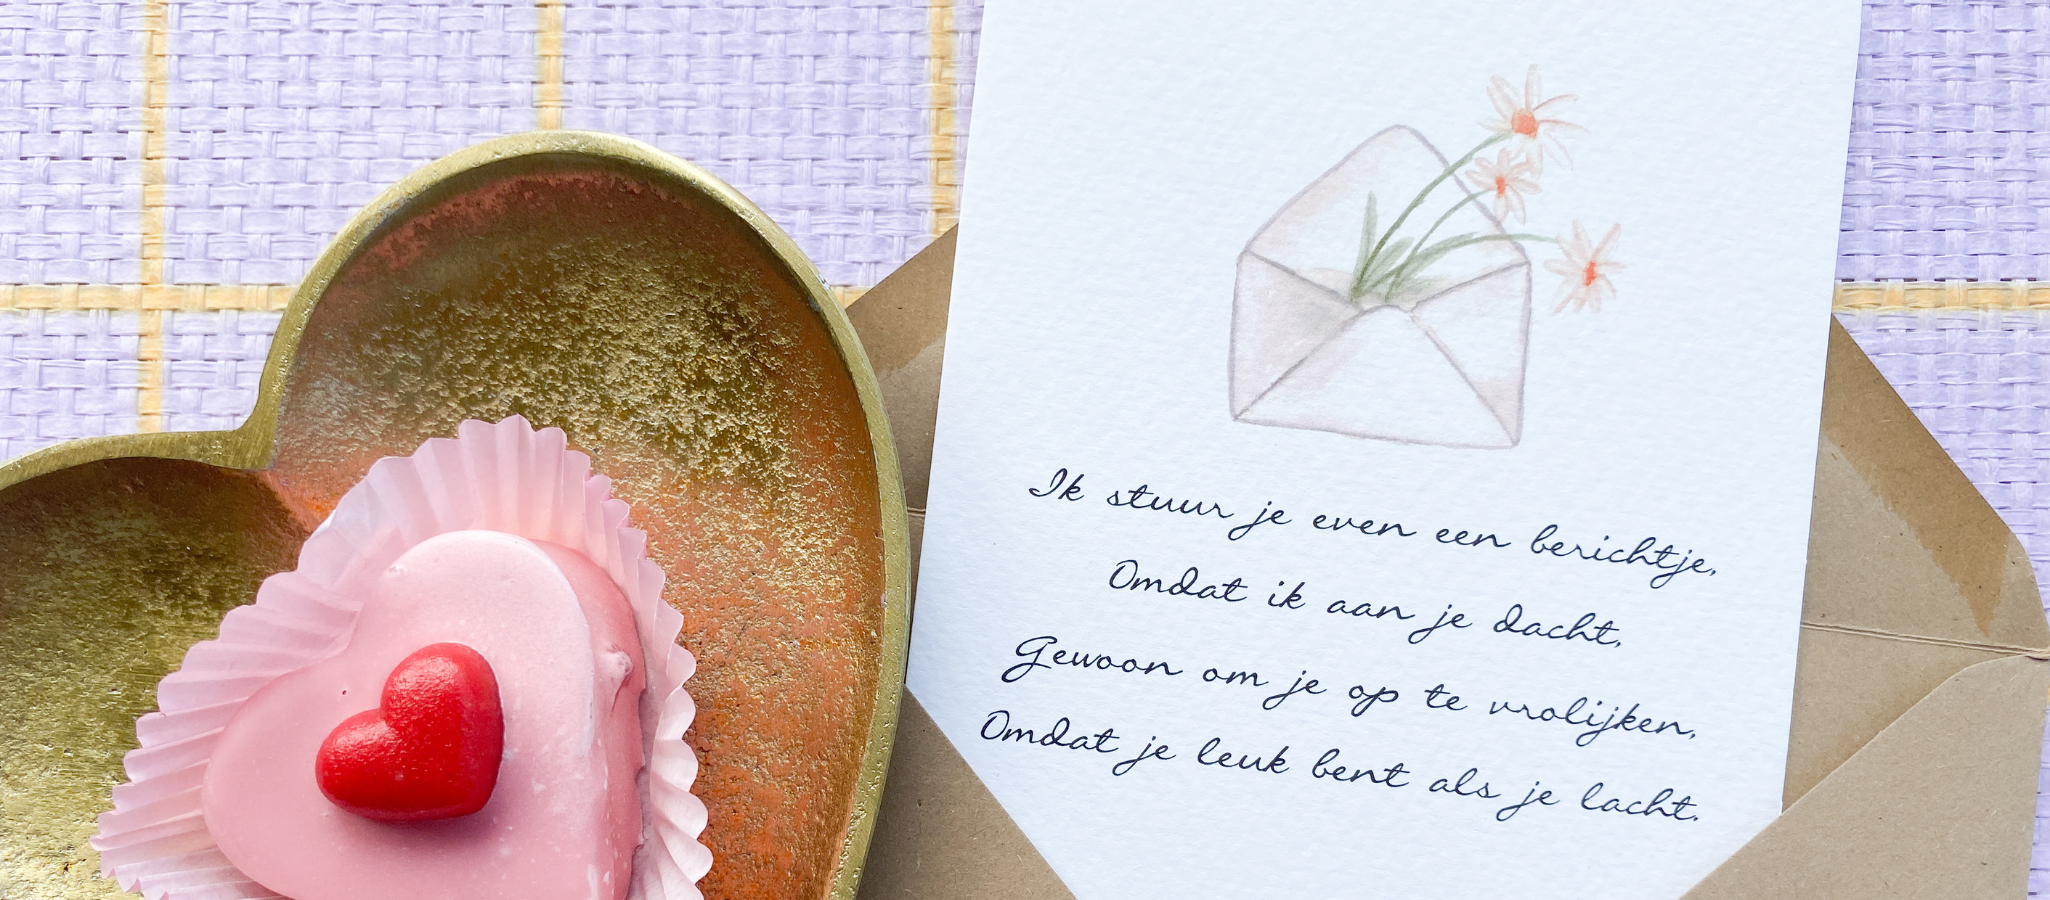 Ik stuur je even een berichtje,
Omdat ik aan je dacht,
Gewoon om je op te vrolijken,
Omdat je leuk bent als je lacht.